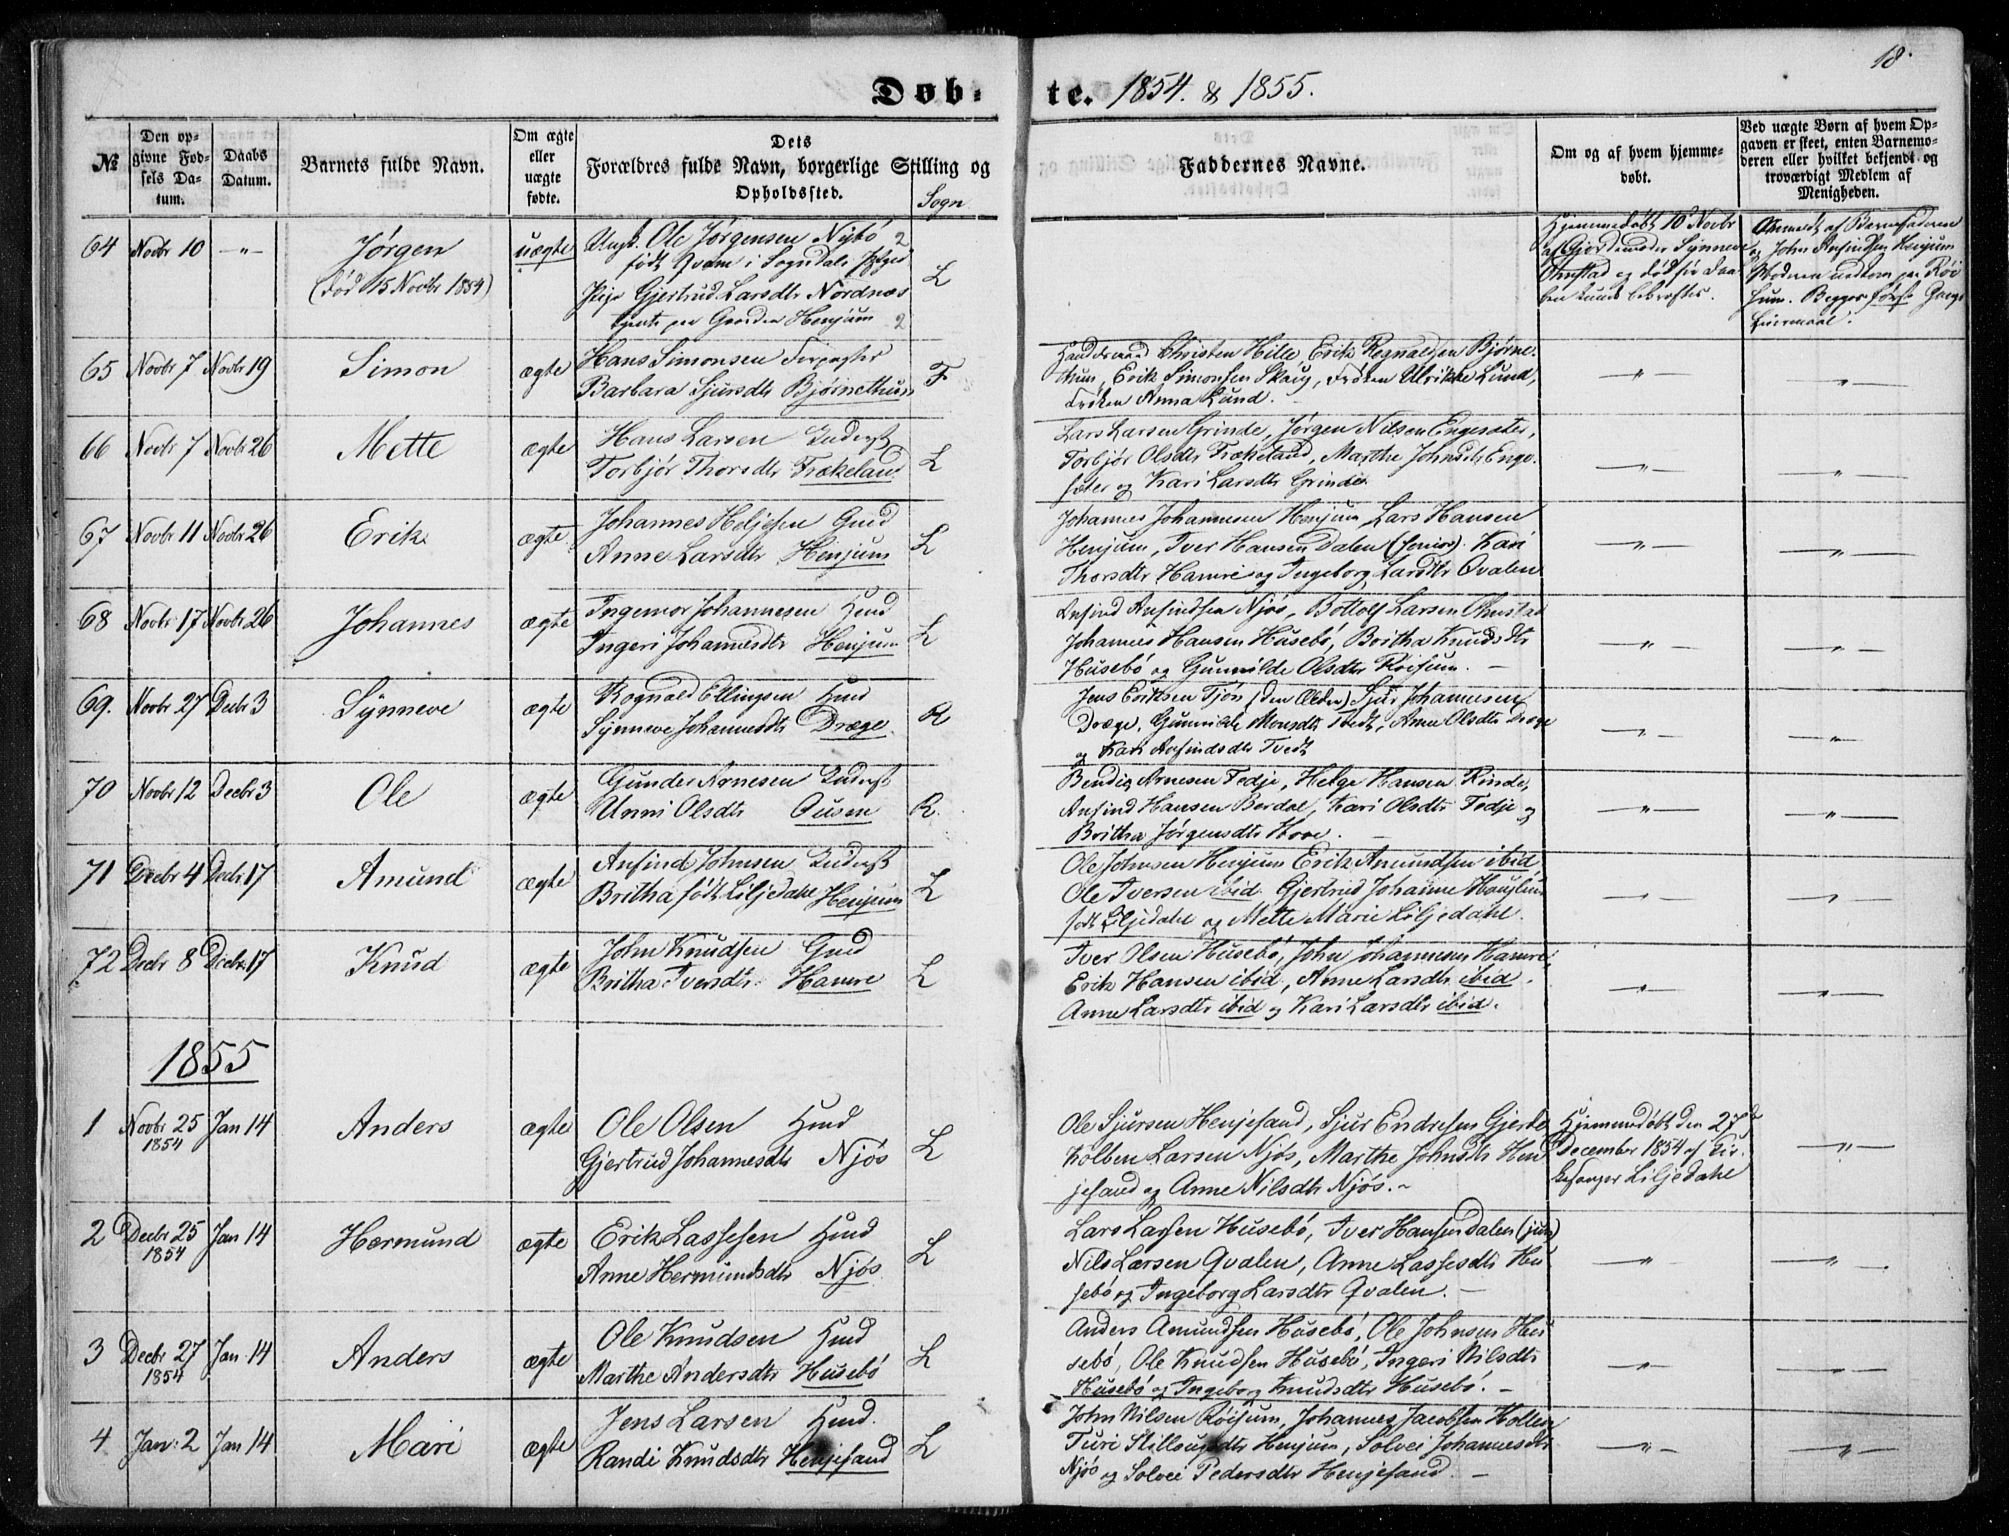 18.
Døb-te. 1854. & 1855.
№
Den op-
givne Fød-
sels Da-
tum.
Daabs
Datum.
Barnets fulde Navn.
Om ægte
eller
uægte
fødte.
Dets
Forældres fulde Navn, borgerlige Stilling og
Opholdssted.
Sogn
Faddernes Navne.
Om og af hvem hjemme-
døbt.
Ved uægte Børn af hvem Op-
gaven er skeet, enten Barnemo-
deren eller hvilket bekjendt og
troværdigt Medlem af
Menigheden.
64 Novbr 10 -"- Jørgen
(død 15 Novbr 1854)
uægte
Ungk. Ole Jørgensen Nybø 2
født Qvam i Sogndals
Pige Gjertrud Larsdtr Nordnæs
tjente paa Gaarden Henjum 2
L
Hjemmedøbt 10 Novbr
af Gjordemoder Synneve
Ohnstad og død før Daa-
ben kunde bekræftes.
Anmeldt af Barnefaderen
og John Anfindsen Henjum
Moderen paa Røi-
sum. Begges første Gangs
Leiermaal.
65 Novbr 7 Novbr 19 Simon ægte
Hans Simonsen Forpagter
Barbara Sjursdtr Bjørnethun F
Christen Hille, Erik Rognaldsen Bjørne-
thun, Erik Simonsen Skaug, Frøken Ulrikke Lund,
Frøken Anna Lund.
-"- -"-
66 Novbr 7 Novbr 26 Mette ægte
Hans Larsen Inderst
Torbjør Thorsdtr Frækeland L
Lars Larsen Grinde, Jørgen Nilsen Engesæter,
Torbjør Olsdtr Frækeland, Marthe Johnsdtr Enge-
sæter og Kari Larsdtr Grinde.
-"- -"-
67 Novbr 11 Novbr 26 Erik ægte
Johannes Heljesen Gmd
Anne Larsdtr Henjum L
Johannes Johannesen Henjum Lars Hansen
Henjum, Iver Hansen Dalen (senior). Kari
Thorsdtr Hamre og Ingeborg Larsdtr Qvalen
-"- -"-
68 Novbr 17 Novbr 26 Johannes ægte
Ingemor Johannesen Hmd
Ingeri Johannesdtr Henjum L
Anfind Anfindsen Njøs, Bottolf Larsen Ohnstad
Johannes Hansen Husebø, Britha Knudsdtr
Husebø og Gunnilde Olsdtr Røisum. -
-"- -"-
69. Novbr 27 Decbr 3 Synneve ægte
Rognald Ellingsen Hmd
Synneve Johannesdtr Dræge. R
Jens Eriksen Tjøn (den Ældre) Sjur Johannesen
Dræge, Gunnilde Monsdtr Tvedt, Anne Olsdtr Dræge
og Kari Anfindsdtr Tvedt
-"- -"-
70 Novbr 12 Decbr 3 Ole ægte
Gunder Arnesen Inderst
Unni Olsdtr Ousen R.
Bendix Arnesen Fedje, Helge Hansen Rinde,
Anfind Hansen Berdal, Kari Olsdtr Fedje og
Britha Jørgensdtr Hove. -
-"- -"-
71 Decbr 4 Decbr 17 Amund ægte
Anfind Johnsen Inderst
Britha født Liljedahl Henjum L
Ole Johnsen Henjum Erik Amundsen ibid
Ole Iversen ibid. Gjertrud Johanne
født Liljedahl og Mette Marie Liljedahl.
-"- -"-
72 Decbr 8 Decbr 17 Knud ægte
John Knudsen Gmd
Britha Iversdtr Hamre L
Iver Olsen Husebø, John Johannesen Hamre,
Erik Hansen ibid, Anne Larsdtr ibid.
Anne Larsdtr ibid og Kari Larsdtr ibid.
-"- -"-
1855
1 Novbr 25
1854 Jan 14 Anders ægte
Ole Olsen Hmd
Gjertrud Johannesdtr Njøs L
Ole Sjursen Henjesand, Sjur Endresen Gjerde
Kolben Larsen Njøs, Marthe Johnsdtr Hen-
jesand og Anne Nilsdtr Njøs. -
Hjemmedøbt den 27de
December 1854 af Kir-
kesanger Liljedahl
-"-
2 Decbr 25
1854 Jan 14 Hermund ægte
Erik Lassesen Hmd
Anne Hermundsdtr Njøs. L
Lars Larsen Husebø, Iver Hansen Dalen (jun)
Nils Larsen Qvalen, Anne Lassesdtr Hu-
sebø og Ingeborg Larsdtr Qvalen. -
-"- -"-
3 Decbr 27
1854 Jan 14 Anders ægte
Ole Knudsen Hmd
Marthe Andersdtr Husebø L
Anders Amundsen Husebø, Ole Johnsen Hu-
sebø, Ole Knudsen Husebø, Ingeri Nilsdtr
Husebø og Ingeborg Knudsdtr Husebø. -
-"- -"-
4 Jan: 2 Jan 14 Mari ægte
Jens Larsen Hmd.
Randi Knudsdtr Henjesand L
John Nilsen Røisum, Johannes Jacobsen Hollen
Turi Henjum, Solvei Johannesdtr
Njøs og Solvei Pedersdtr Henjesand. -
-"- -"-